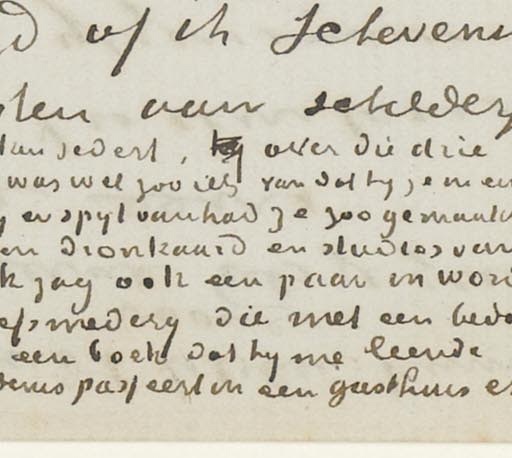 of ik Scheveni
ten van schilder
landerd, over die drie
was wel zoo iets van dat hy ze m en
er spyt van had ze zoo gemaakt
en dronkaard en studies van
k zag ook een paar in wor
efsmedery die met een bedo
een boek dat hy me leende
passeert in een gasthuis e